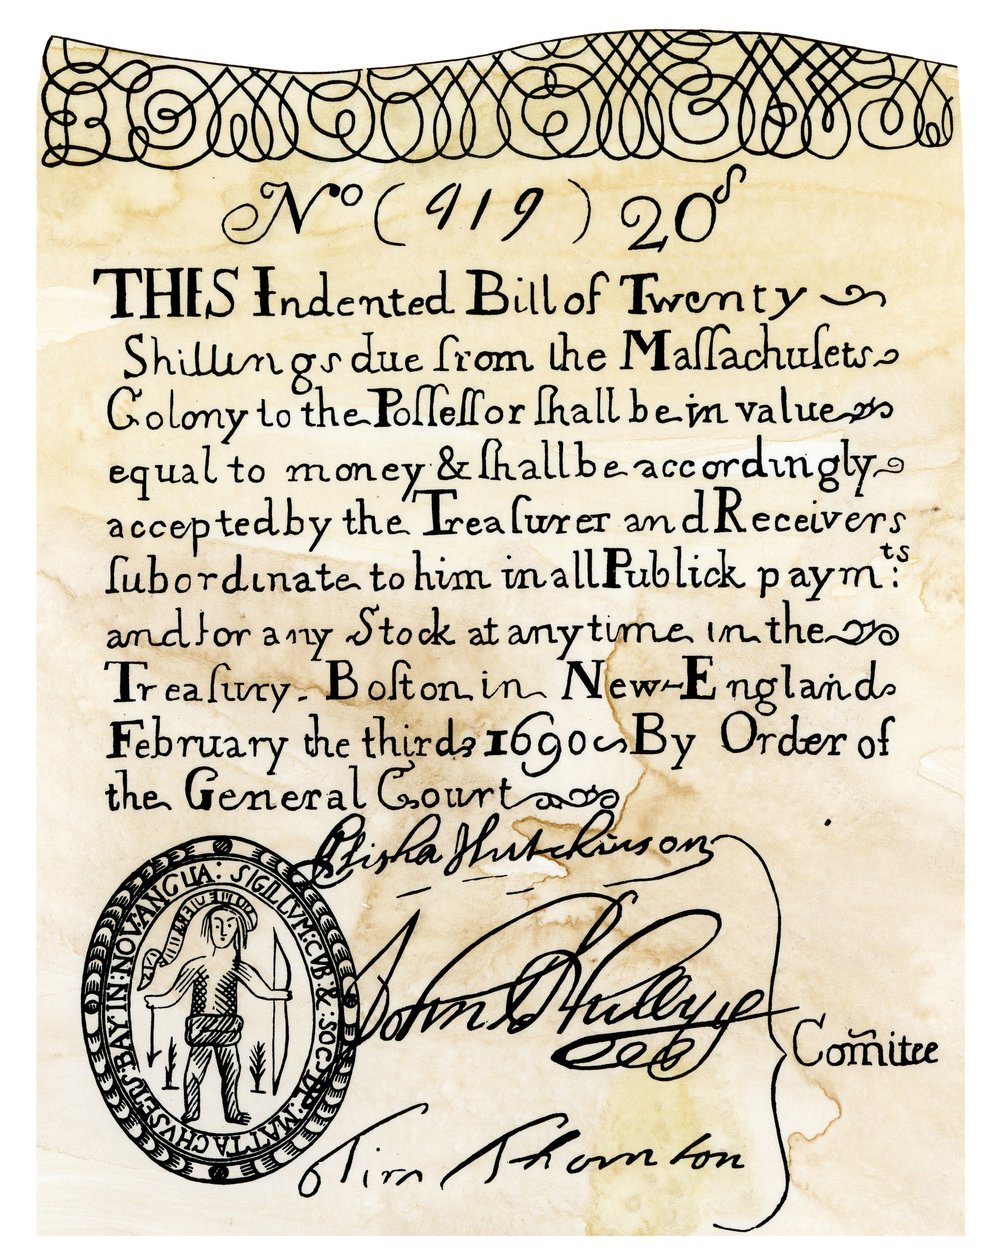 No (919) 20s
THIS Indented Bill of Twenty
Shillings due from the Maſſachuſets
Colony to the Poſſeſſor ſhall be in value
equal to money & ſhall be accordingly
accepted by the Treaſurer and Receivers
ſubordinate to him in all Publick paym:ts
and for any Stock at any time in the
Treaſury. Boſton in New-England
February the third 1690 By Order of
the General Court
Eliſha Hutchinson
John Phillips
Tim Thornton
Com̃itee
SIGILLVM:GVB:&:SOC:DE:MATTACHVSETS:BAY:IN:NOV:ANGLIA: